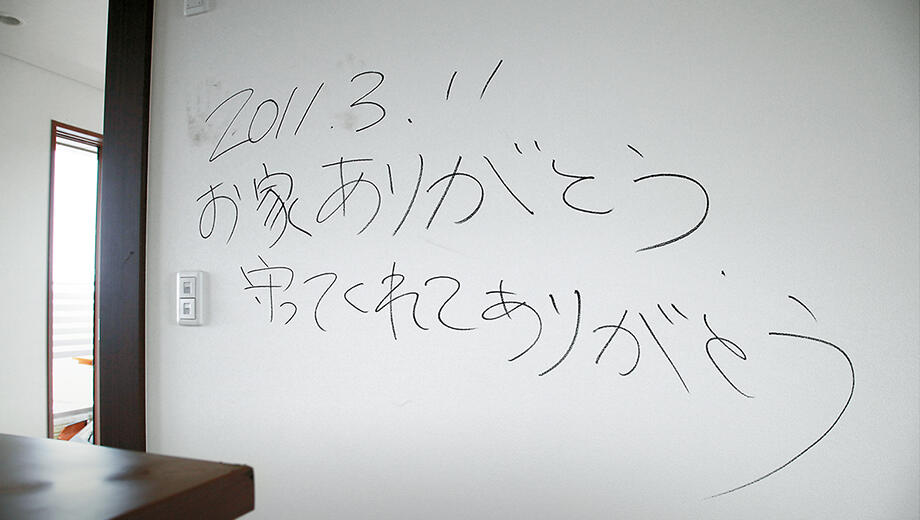 2011.3.11
お家ありがとう
守ってくれてありがとう